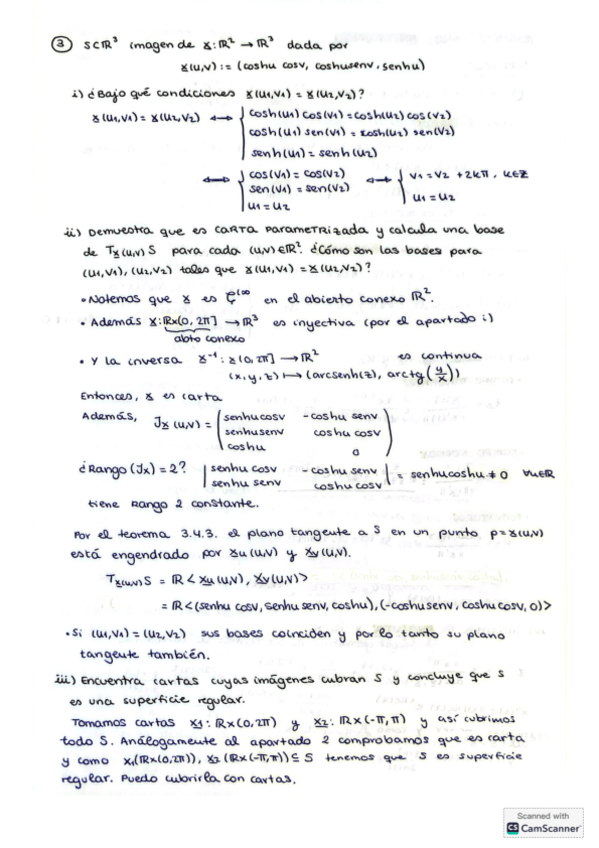 ③ S⊂ℝ³ imagen de 𝕩: ℝ² → ℝ³ dada por
𝕩(u,v) := (coshu cosv, coshu senv, senhu)
i) ¿Bajo qué condiciones 𝕩(u1,v1) = 𝕩(u2,v2)?
𝕩(u1,v1) = 𝕩(u2,v2) ⟷ { cosh(u1) cos(v1) = cosh(u2) cos(v2)
cosh(u1) sen(v1) = cosh(u2) sen(v2)
senh(u1) = senh(u2)
⟷ { cos(v1) = cos(v2) ⟷ { v1 = v2 + 2kπ, k∈ℤ
sen(v1) = sen(v2)
u1 = u2 u1 = u2
ii) Demuestra que es CARTA PARAMETRIZADA y calcula una base
de T𝕩(u,v) S para cada (u,v)∈ℝ². ¿Cómo son las bases para
(u1,v1), (u2,v2) tales que 𝕩(u1,v1) = 𝕩(u2,v2)?
• Notemos que 𝕩 es C^∞ en el abierto conexo ℝ².
• Además 𝕩: ℝx(0, 2π] → ℝ³ es inyectiva (por el apartado i)
abto conexo
• Y la inversa 𝕩⁻¹: 𝕩(0, 2π] → ℝ² es continua
(x, y, z) ⟼ (arcsenh(z), arctg(y/x))
Entonces, 𝕩 es carta
Además, J𝕩 (u,v) = ( senhu cosv -coshu senv
senhu senv coshu cosv
coshu 0 )
¿Rango (J𝕩) = 2? | senhu cosv -coshu senv
senhu senv coshu cosv | = senhu coshu ≠ 0 ∀u∈ℝ
tiene Rango 2 constante.
Por el teorema 3.4.3. el plano tangente a S en un punto p=𝕩(u,v)
está engendrado por 𝕩u (u,v) y 𝕩v (u,v).
T𝕩(u,v) S = ℝ < 𝕩u (u,v), 𝕩v (u,v) >
= ℝ <(senhu cosv, senhu senv, coshu), (-coshu senv, coshu cosv, 0)>
• Si (u1,v1) = (u2,v2) sus bases coinciden y por lo tanto su plano
tangente también.
iii) Encuentra cartas cuyas imágenes cubran S y concluye que S
es una superficie regular.
Tomamos cartas 𝕩1: ℝx(0, 2π) y 𝕩2: ℝx(-π, π) y así cubrimos
todo S. Análogamente al apartado 2 comprobamos que es carta
y como 𝕩1(ℝx(0, 2π)), 𝕩2 (ℝx(-π, π)) ⊆ S tenemos que S es superficie
regular. Puedo cubrirla con cartas.
Scanned with
CS CamScanner